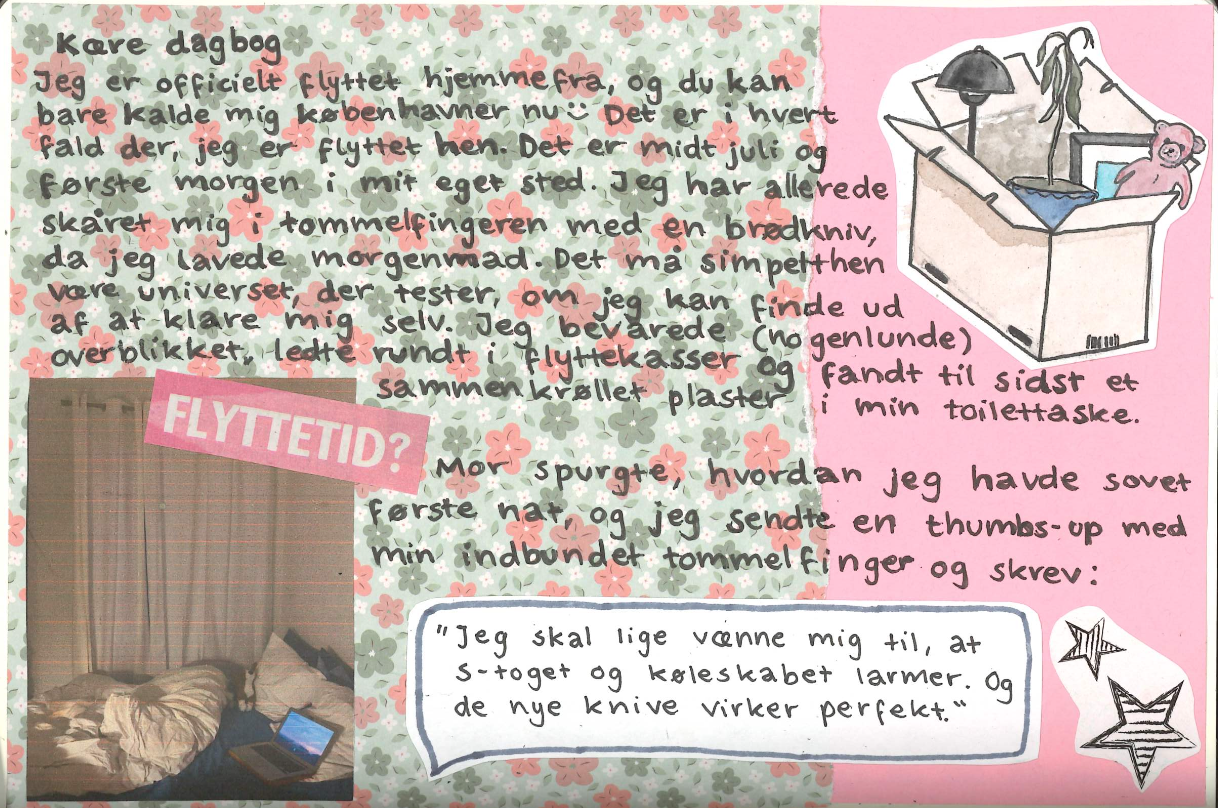 Kære dagbog
Jeg er officielt flyttet hjemmefra, og du kan
bare kalde mig københavner nu :) Det er i hvert
fald der, jeg er flyttet hen. Det er midt juli og
første morgen i mit eget sted. Jeg har allerede
skåret mig i tommelfingeren med en brødkniv,
da jeg lavede morgenmad. Det må simpelthen
være universet, der tester, om jeg kan finde ud
af at klare mig selv. Jeg bevarede (nogenlunde)
overblikket, ledte rundt i flyttekasser og fandt til sidst et
sammenkrøllet plaster i min toilettaske.
FLYTTETID?
Mor spurgte, hvordan jeg havde sovet
første nat, og jeg sendte en thumbs-up med
min indbundet tommelfinger og skrev:
"Jeg skal lige vænne mig til, at
S-toget og køleskabet larmer. Og
de nye knive virker perfekt."